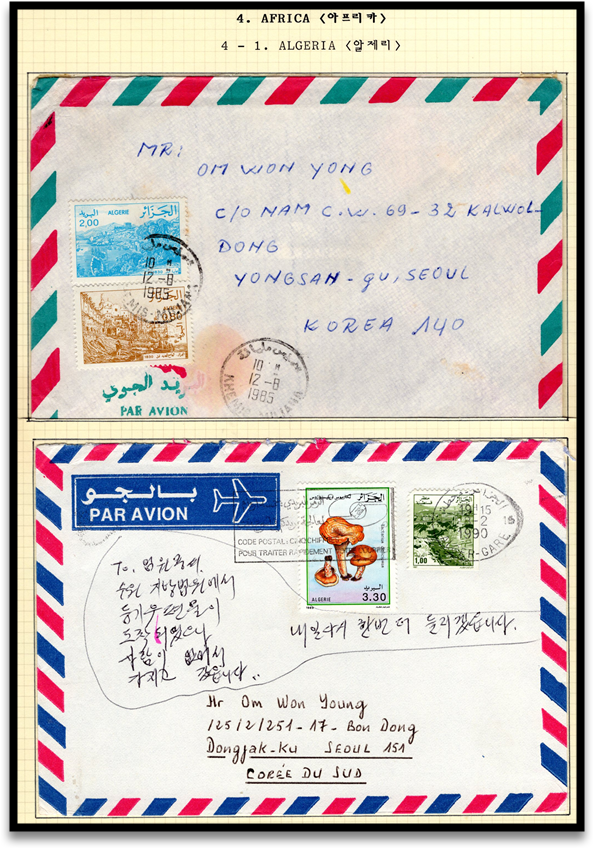 4. AFRICA <아프리카>
4 - 1. ALGERIA <알제리>
MR:
OM WON YONG
C/O NAM C.W. 69-32 KALWOL-
DONG
YONGSAN-gu, SEOUL
KOREA 140
ALGERIE البريد الجزائر
2,00
10
12-8
1985
الجزائر
10
12-8
1985
KHEMIS-MILIANA
البريد الجوي
PAR AVION
بالجو
PAR AVION
CODE POSTAL: CINQ CHIFFRES
POUR TRAITER RAPIDEMENT
الجزائر
ALGERIE
3.30
1,00
19 15
2
1990
GARE
To. 엄원용씨.
수원 지방법원에서
등기우편물이
도착되었으나
사람이 없어서
가지고 갑니다..
내일 다시 한번 더 들리겠습니다.
Mr Om Won Young
125/2/251-17-Bon Dong
Dongjak-Ku SEOUL 151
CORÉE DU SUD